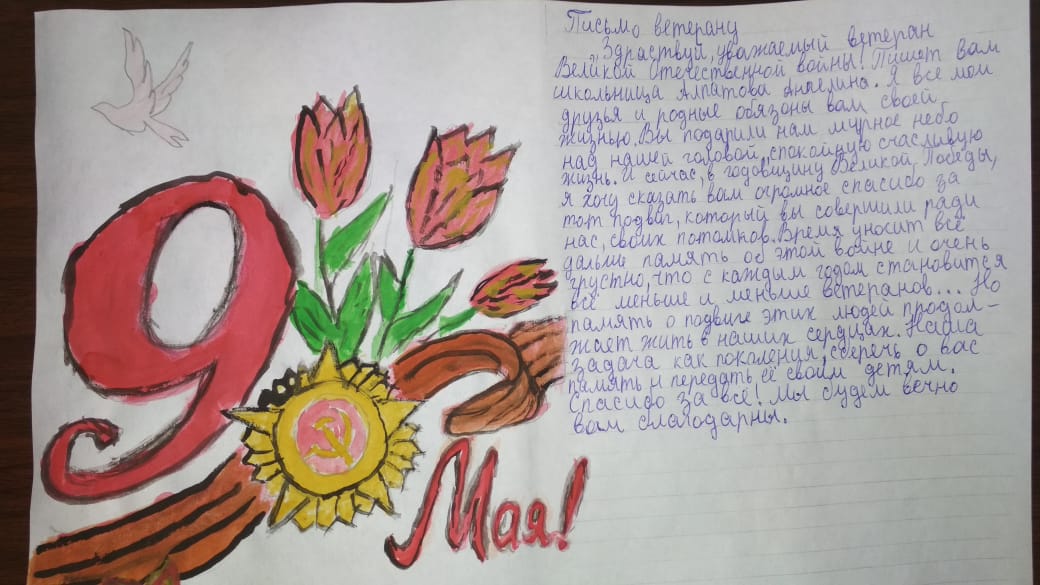 9
Мая!
Письмо ветерану
Здраствуй, уважаемый ветеран
Великой Отечественной войны! Пишет вам
школьница Алпатова Ангелина. Я все мои
друзья и родные обязоны вам своей
жизнью. Вы подарили нам мирное небо
над нашей головой, спокойную счасливую
жизнь. И сейчас, в годовщину Великой Победы,
я хочу сказать вам огромное спасибо за
тот подвиг, который вы совершили ради
нас, своих потомков. Время уносит всё
дальше память об этой войне и очень
грустно, что с каждым годом становится
всё меньше и меньше ветеранов... Но
память о подвиге этих людей продол-
жает жить в наших сердцах. Наша
задача как покления, сберечь о вас
память и передать её своим детям.
Спасибо за всё! Мы будем вечно
вам благодарны.